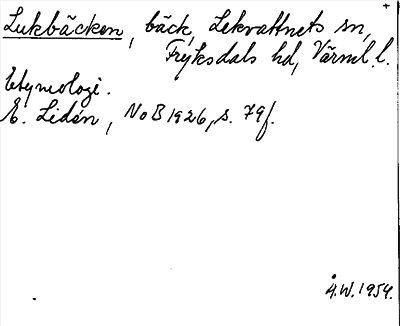 Lukbäcken, bäck, Lekvattnets sn,
Fryksdals hd, Värml. l.
Etymologi.
E. Lidén, NoB 1926, s. 79f.
Å.W. 1954.